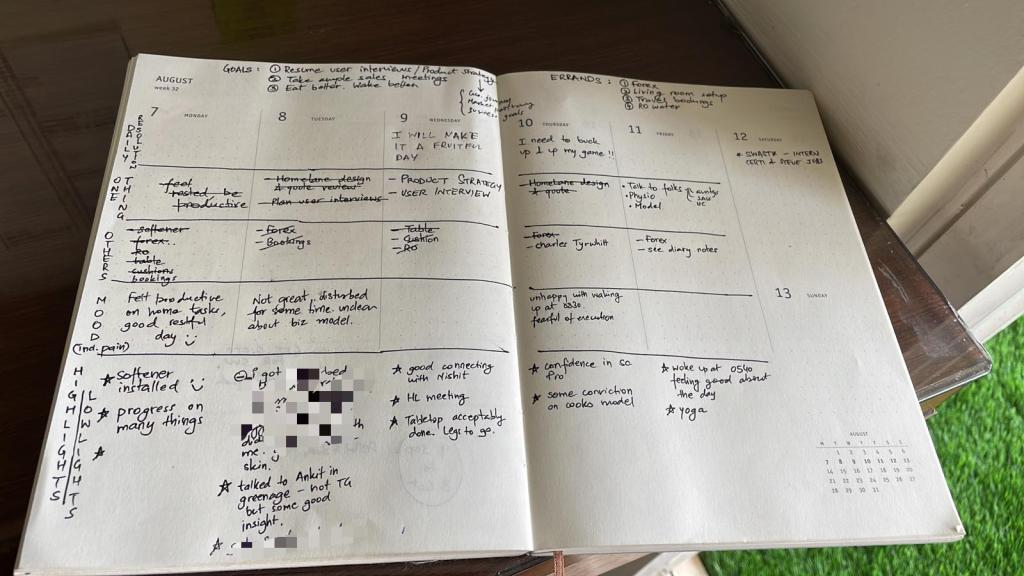 AUGUST
week 32
GOALS: ① Resume user interviews / Product Strategy
② Take ample sales meetings
③ Eat better. Wake better
goals
ERRANDS: ① Forex
② Living room setup
③ Travel bookings
④ RO water
DAILY
ONE THING
OTHERS
MOOD
(ind. pain)
HIGHLIGHTS
LOWLIGHTS
7 MONDAY
feel
rested be
productive
- Softener
forex.
- RO
- table
- cushions
bookings
Felt productive
on home tasks,
good restful
day
☆ Softener
installed
☆ progress on
many things
☆
8 TUESDAY
- Homelane design
& quote review
- Plan user interviews
- Forex
- Bookings
Not great, disturbed
for some time. unclear
about biz model.
I got
me.
skin.
☆ talked to Ankit in
greenage - not TG
but some good
insight.
☆
9 WEDNESDAY
I WILL MAKE
IT A FRUITFUL
DAY
- PRODUCT STRATEGY
- USER INTERVIEW
- Table
- Cushion
- RO
☆ good connecting
with Nishit
☆ HL meeting
☆ Tabletop acceptably
done. Legs to go.
10 THURSDAY
I need to buck
up & up my game !!
- Homelane design
& quote
- Forex
- charles Tyrwhitt
unhappy with waking
up at 0830.
fearful of execution
☆ confidence in sc
Pro
☆ some conviction
on cooks model
11 FRIDAY
• Talk to folks
• Physio
• Model
- Forex
- see diary notes
☆ woke up at 0540
feeling good about
the day
☆ yoga
12 SATURDAY
& STEVE JOBS
13 SUNDAY
AUGUST
M T W T F S S
1 2 3 4 5 6
7 8 9 10 11 12 13
14 15 16 17 18 19 20
21 22 23 24 25 26 27
28 29 30 31